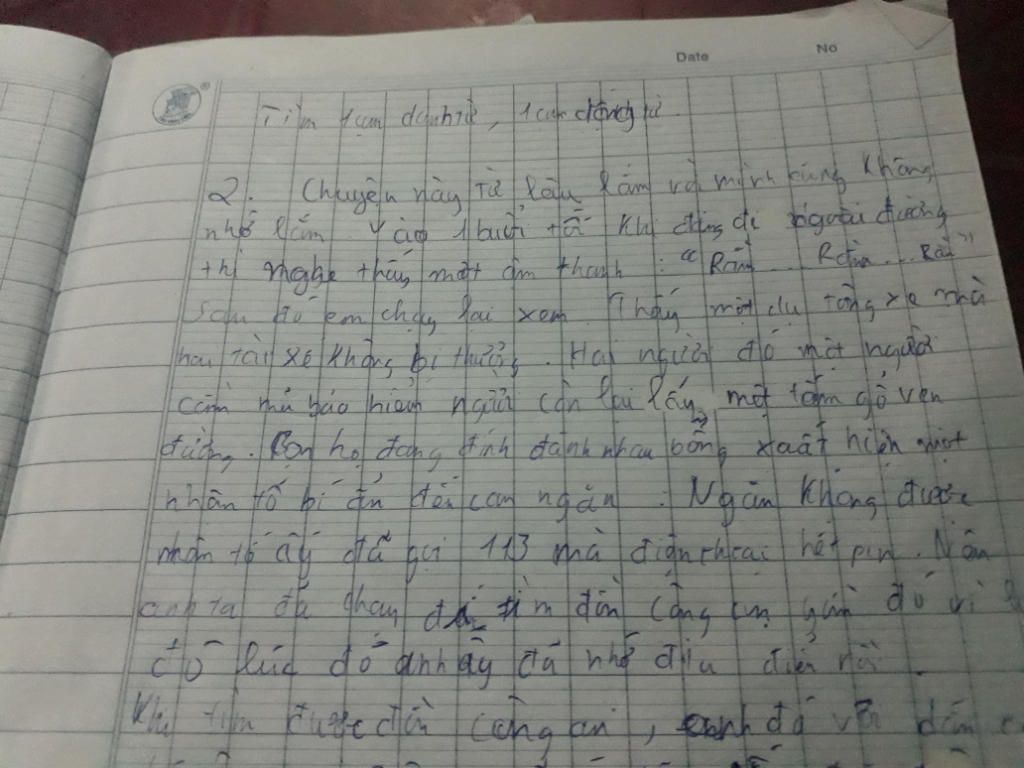 Date No
Tìm 1 cụm danh từ, 1 cụm động từ
2. Chuyện này từ lâu lắm và mình cũng không
nhớ lắm. Vào 1 buổi tối khi đang đi ngoài đường
thì nghe thấy một âm thanh : " Rầm
Sau đó em chạy lại xem. Thấy một vụ tông xe mà
hai tài xế không bị thương. Hai người đó một người
cầm mủ bảo hiểm người còn lại lấy một tấm gỗ ven
đường. họ đang định đánh nhau bỗng xuất hiện một
nhân tố bí ẩn đến can ngăn. Ngăn không được
nhân tố ấy đã gọi 113 mà điện thoại hết pin. Nên
anh ta đã tìm đồn công an gần đó vì
đó lúc đó anh ấy đã nhớ
Khi tìm được đồn công an, anh đó với